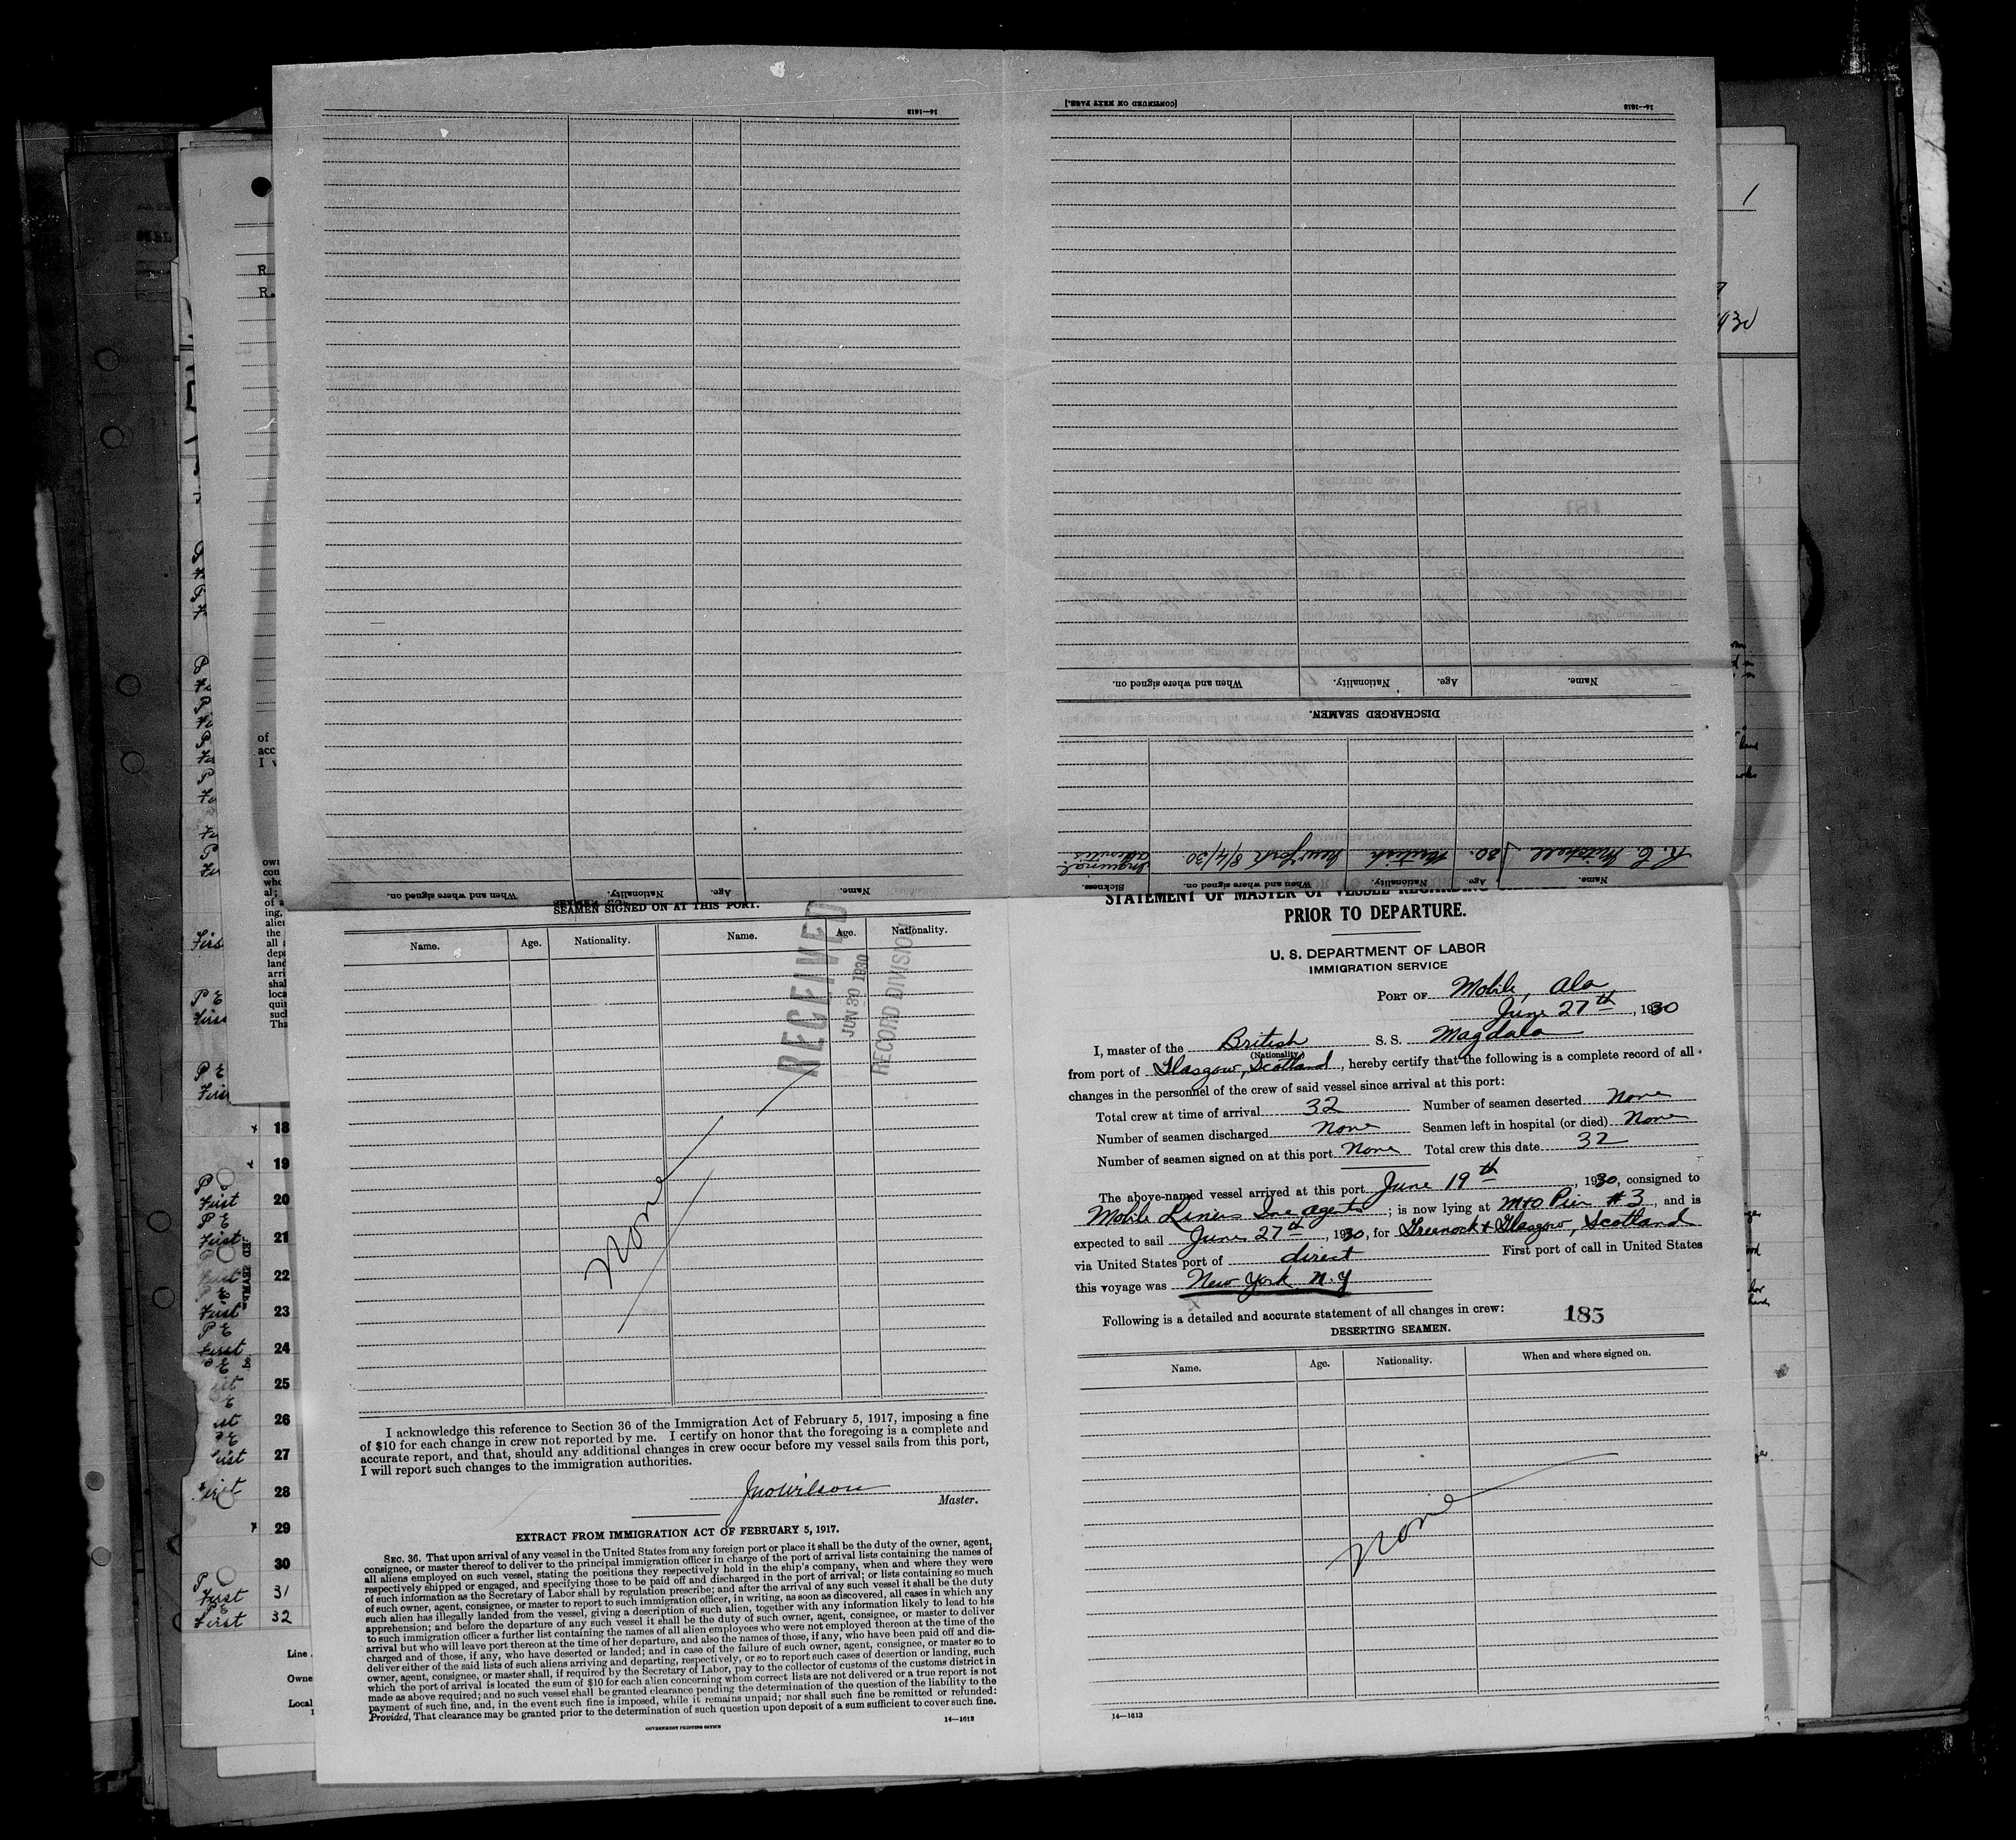 [CONTINUED ON NEXT PAGE.]
14—1613
14—1613
When and where signed on.
Nationality.
Age.
Name.
DISCHARGED SEAMEN.
R. C. Mitchell 30. British New York 8/4/30. Inguinal
Sickness.
When and where signed on.
Nationality.
Age.
Name.
When and where signed on.
Nationality.
Age.
Name.
SEAMEN SIGNED ON AT THIS PORT.
Name. Age. Nationality. Name. Age. Nationality.
RECEIVED
JUN 30 1930
RECORD DIVISION
None
I acknowledge this reference to Section 36 of the Immigration Act of February 5, 1917, imposing a fine
of $10 for each change in crew not reported by me. I certify on honor that the foregoing is a complete and
accurate report, and that, should any additional changes in crew occur before my vessel sails from this port,
I will report such changes to the immigration authorities.
Jno Wilson
Master.
EXTRACT FROM IMMIGRATION ACT OF FEBRUARY 5, 1917.
SEC. 36. That upon arrival of any vessel in the United States from any foreign port or place it shall be the duty of the owner, agent,
consignee, or master thereof to deliver to the principal immigration officer in charge of the port of arrival lists containing the names of
all aliens employed on such vessel, stating the positions they respectively hold in the ship's company, when and where they were
respectively shipped or engaged, and specifying those to be paid off and discharged in the port of arrival; or lists containing so much
of such information as the Secretary of Labor shall by regulation prescribe; and after the arrival of any such vessel it shall be the duty
of such owner, agent, consignee, or master to report to such immigration officer, in writing, as soon as discovered, all cases in which any
such alien has illegally landed from the vessel, giving a description of such alien, together with any information likely to lead to his
apprehension; and before the departure of any such vessel it shall be the duty of such owner, agent, consignee, or master to deliver
to such immigration officer a further list containing the names of all alien employees who were not employed thereon at the time of the
arrival but who will leave port thereon at the time of her departure, and also the names of those, if any, who have been paid off and dis-
charged and of those, if any, who have deserted or landed; and in case of the failure of such owner, agent, consignee, or master so to
deliver either of the said lists of such aliens arriving and departing, respectively, or so to report such cases of desertion or landing, such
owner, agent, consignee, or master shall, if required by the Secretary of Labor, pay to the collector of customs of the customs district in
which the port of arrival is located the sum of $10 for each alien concerning whom correct lists are not delivered or a true report is not
made as above required; and no such vessel shall be granted clearance pending the determination of the question of the liability to the
payment of such fine, and, in the event such fine is imposed, while it remains unpaid; nor shall such fine be remitted or refunded:
Provided, That clearance may be granted prior to the determination of such question upon deposit of a sum sufficient to cover such fine.
GOVERNMENT PRINTING OFFICE
14—1613
STATEMENT OF MASTER OF VESSEL REGARDING
PRIOR TO DEPARTURE.
U. S. DEPARTMENT OF LABOR
IMMIGRATION SERVICE
PORT OF Mobile, Ala
June 27th, 1930
I, master of the British S. S. Magdala
(Nationality)
from port of Glasgow, Scotland, hereby certify that the following is a complete record of all
changes in the personnel of the crew of said vessel since arrival at this port:
Total crew at time of arrival 32 Number of seamen deserted None
Number of seamen discharged None Seamen left in hospital (or died) None
Number of seamen signed on at this port None Total crew this date 32
The above-named vessel arrived at this port June 19th, 1930, consigned to
Mobile Liners Inc agents; is now lying at M+O Pier #3, and is
expected to sail June 27th, 1930, for Greenock & Glasgow, Scotland
via United States port of direct First port of call in United States
this voyage was New York N.Y
Following is a detailed and accurate statement of all changes in crew: 185
DESERTING SEAMEN.
Name. Age. Nationality. When and where signed on.
None
14—1613
18
19
20
21
22
23
24
25
26
27
28
29
30
31
32
First
Line
Owne
Local